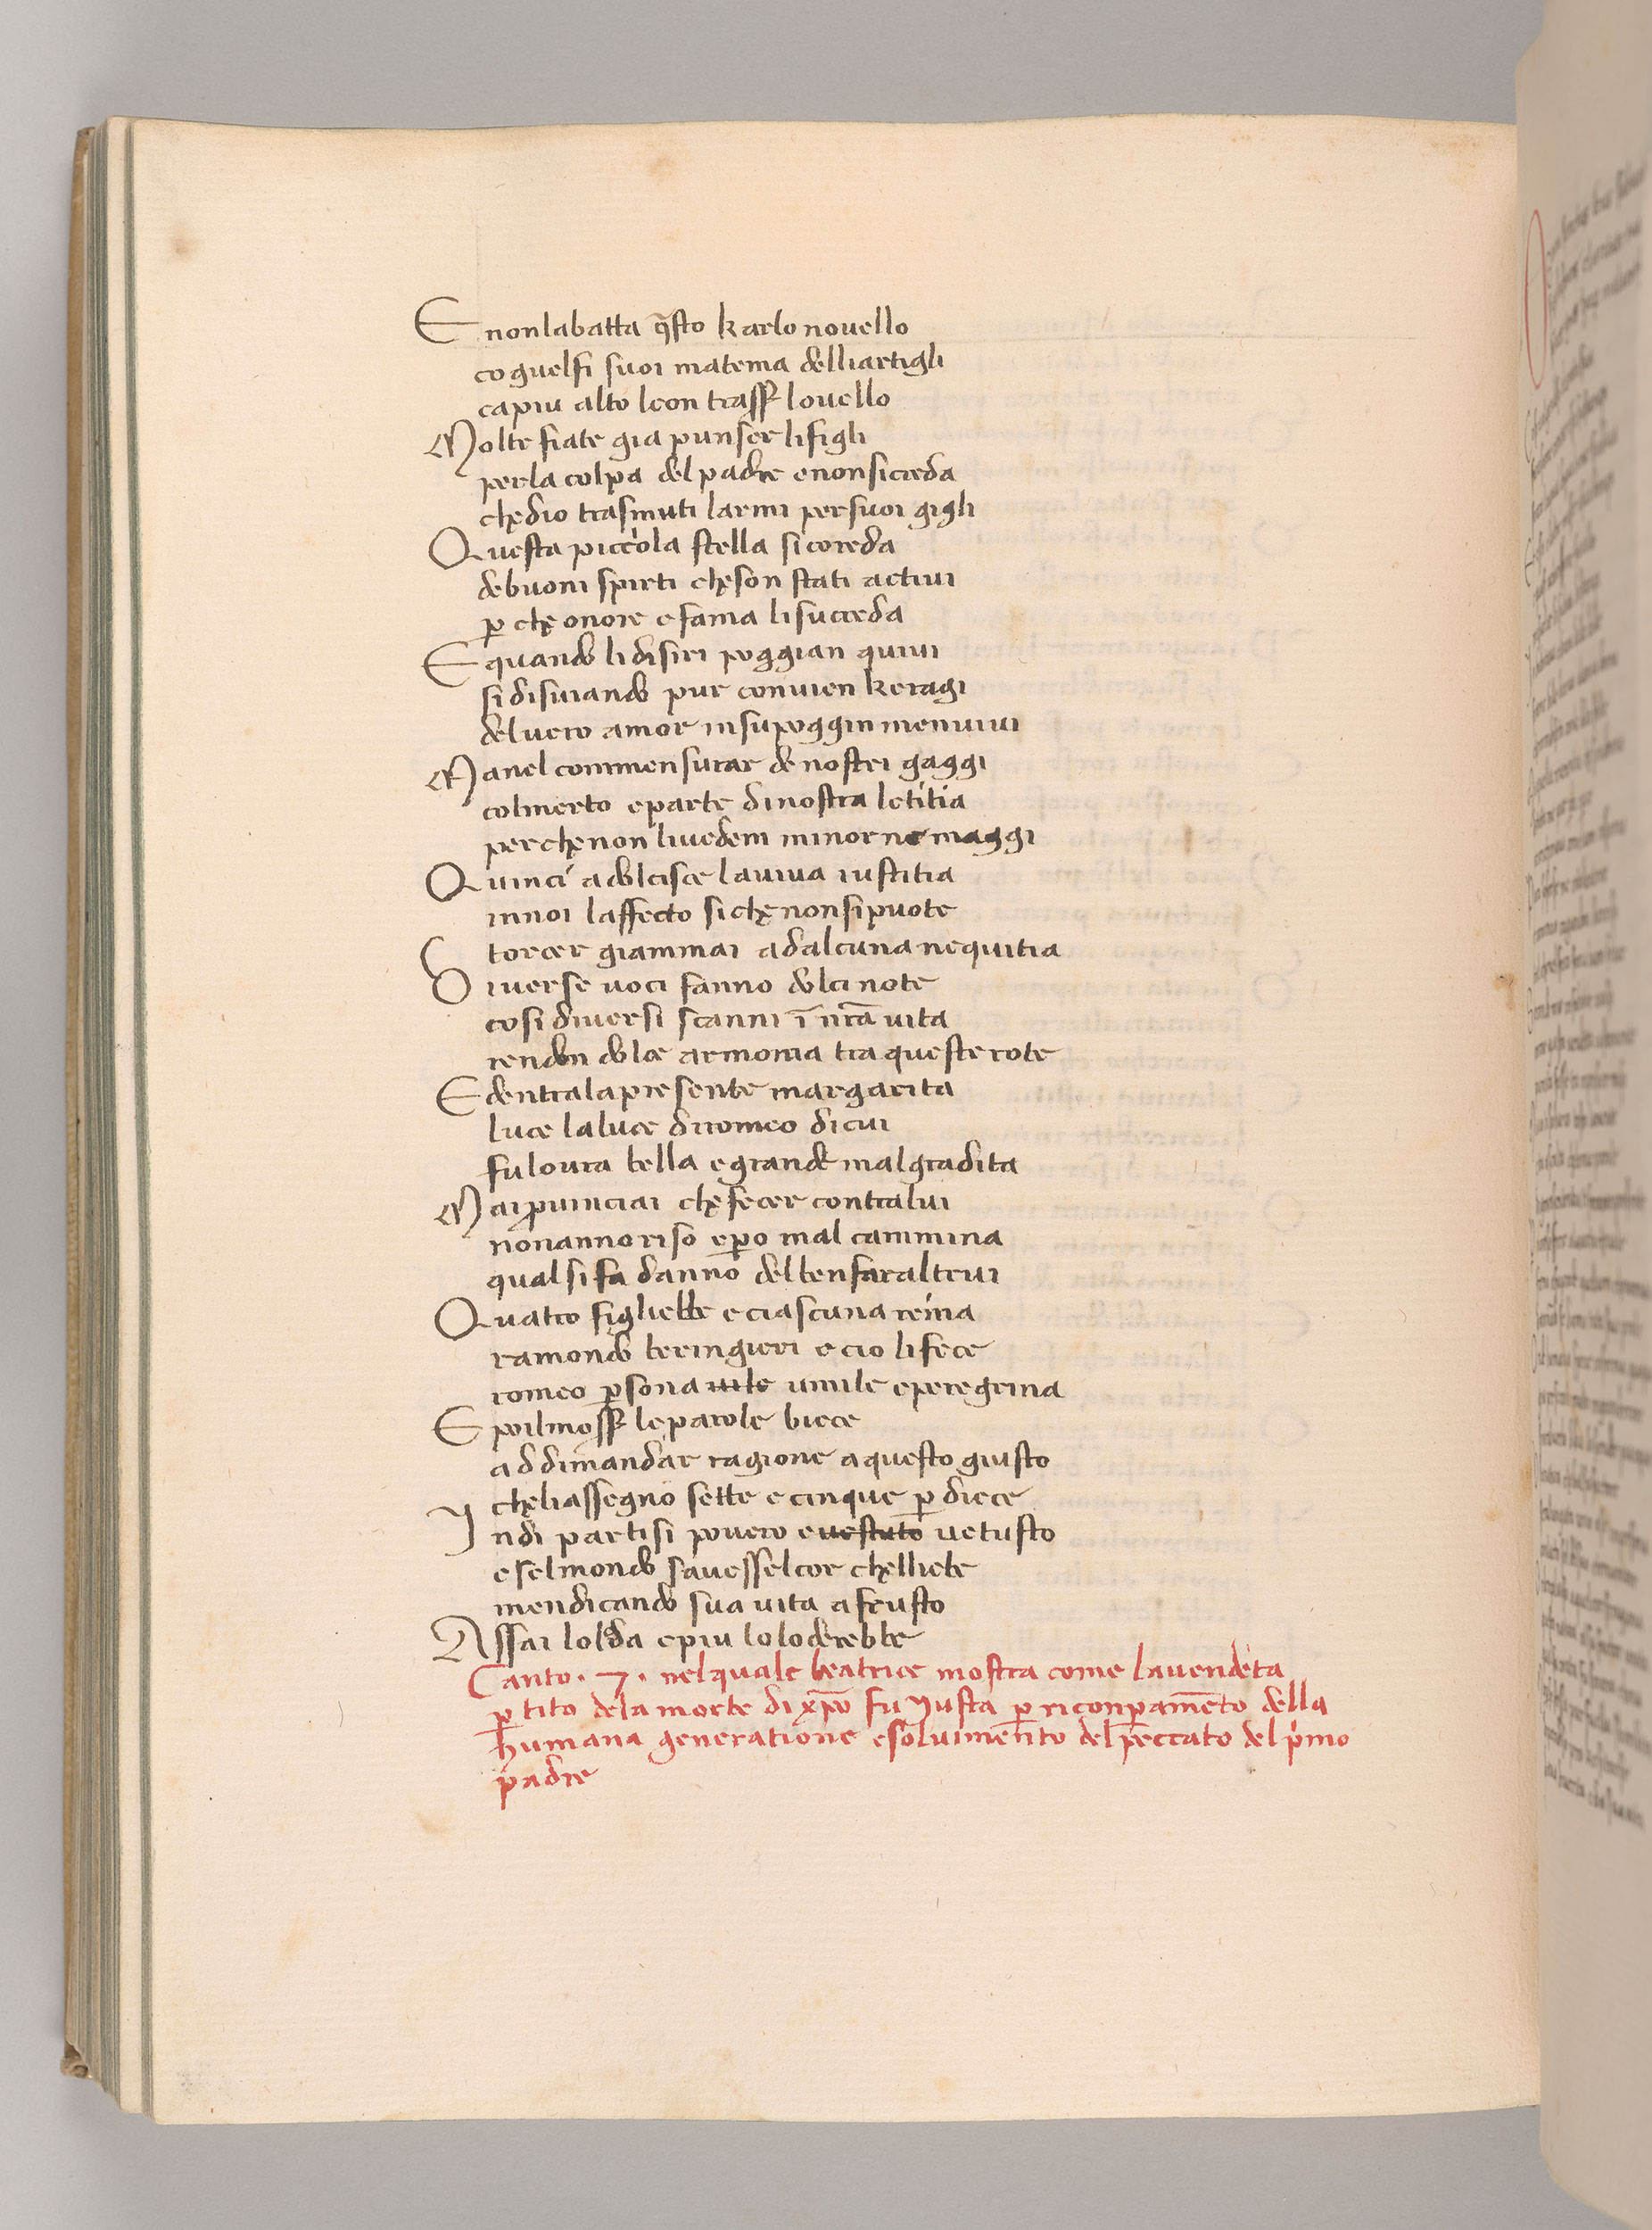 E nonlabatta q̄sto karlo nouello
co guelfi suoi ma tema delliartigli
capiu alto leon trasse louello
Molte fiate gia punser lifigli
perla colpa del padre enonsicreda
chedio trasmuti larmi persuoi gigli
Questa picciola stella sicoreda
debuoni spirti cheson stati actiui
p̱ che onore efama lisucceda
E quando lidisiri poggian quiui
si disuiando pur conuien keragi
deluero amor insupoggin menuiui
Manel commensurar de nostri gaggi
colmerto eparte dinostra letitia
perchenon liuedem minor ne maggi
Quinci adolcisce lauiua iustitia
innoi laffecto siche nonsipuote
torcer giammai adalcuna nequitia
Diuerse uoci fanno dolci note
cosi diuersi scanni ī nr̄a uita
rendon dolce armonia tra queste rote
E dentralapresente margarita
luce laluce diromeo dicui
fuloura bella egrande malgradita
Maipuinciai chefecer contralui
nonannoriso ep̱o mal cammina
qualsifa danno delbenfaraltrui
Quatro figliebbe eciascuna reina
ramondo beringieri ecio lifece
romeo p̱sona uile umile eperegrina
E poilmosse leparole biece
addimandar ragione aquesto giusto
cheliassegno sette ecinque p̱ diece
Indi partisi pouero euestuto uetusto
eselmondo sauesselcor chelliebe
mendicando sua uita afrusto
Assai lolda epiu loloderebbe
Canto · 7 · nelquale beatrice mostra come lauendeta
p̱ tito dela morte di xp̄o fu Justa p̱ riconp̱amēto della
humana generatione esoluimento del peccato del p'mo
padre